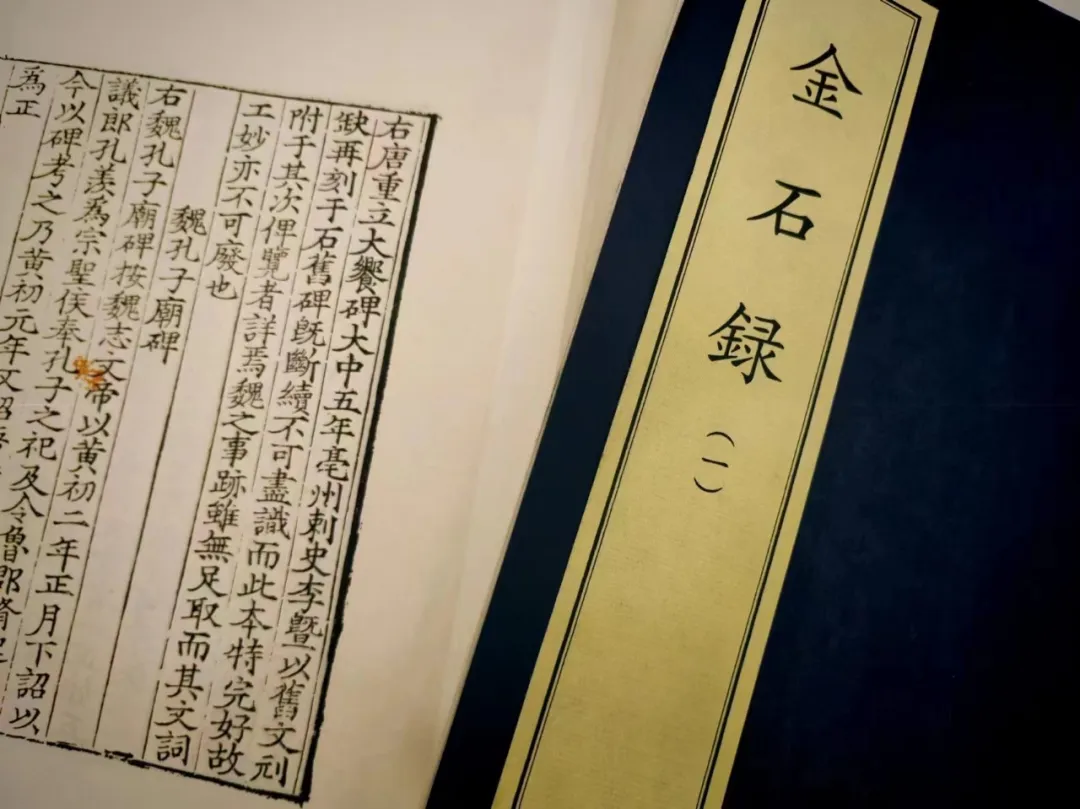 右唐重立大饗碑大中五年亳州刺史李曁以舊文刓
缺再刻于石舊碑旣斷續不可盡識而此本特完好故
附于其次俾覽者詳焉魏之事跡雖無足取而其文詞
工妙亦不可廢也
魏孔子廟碑
右魏孔子廟碑按魏志文帝以黄初二年正月下詔以
議郎孔羡爲宗聖侯奉孔子之祀及令魯郡脩
今以碑考之乃黄初元年又詔
爲正
金石録（一）